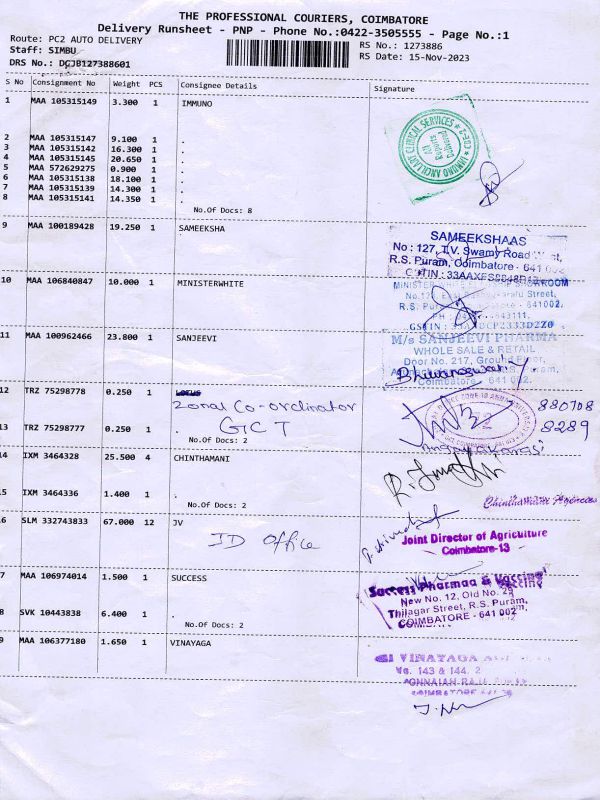 THE PROFESSIONAL COURIERS, COIMBATORE
Delivery Runsheet - PNP - Phone No.:0422-3505555 - Page No.:1
Route: PC2 AUTO DELIVERY
Staff: SIMBU
RS No.: 1273886
DRS No.: DCJB127388601
RS Date: 15-Nov-2023
S No Consignment No Weight PCS Consignee Details Signature
1 MAA 105315149 3.300 1 IMMUNO
2 MAA 105315147 9.100 1 .
3 MAA 105315142 16.300 1 .
4 MAA 105315145 20.650 1 .
5 MAA 572629275 0.900 1 .
6 MAA 105315138 18.100 1 .
7 MAA 105315139 14.300 1 .
8 MAA 105315141 14.350 1 .
No.Of Docs: 8
ANCILLARY CLINICAL SERVICES
9 MAA 100189428 19.250 1 SAMEEKSHA
SAMEEKSHAAS
No : 127, T.V. Swamy Road West,
R.S. Puram, Coimbatore - 641 002
10 MAA 106840847 10.000 1 MINISTERWHITE
SHOWROOM
Street,
R.S. 641002.
11 MAA 100962466 23.800 1 SANJEEVI
M/s SANJEEVI PHARMA
WHOLE SALE & RETAIL
Door No. 217, Ground Floor,
Coimbatore - 641 002.
Bhuvaneswari
12 TRZ 75298778 0.250 1
Zonal Co-ordinator
GCT
13 TRZ 75298777 0.250 1 .
No.Of Docs: 2
880708
8289
14 IXM 3464328 25.500 4 CHINTHAMANI
15 IXM 3464336 1.400 1 .
No.Of Docs: 2
Chinthamani Agencies
16 SLM 332743833 67.000 12 JV
JD Office
Joint Director of Agriculture
Coimbatore-13
7 MAA 106974014 1.500 1 SUCCESS
8 SVK 10443838 6.400 1 .
No.Of Docs: 2
Success Pharmaa & Vaccine
New No. 12, Old No. 29
Thilagar Street, R.S. Puram,
COIMBATORE - 641 002
9 MAA 106377180 1.650 1 VINAYAGA
VINAYAGA
143 & 144,